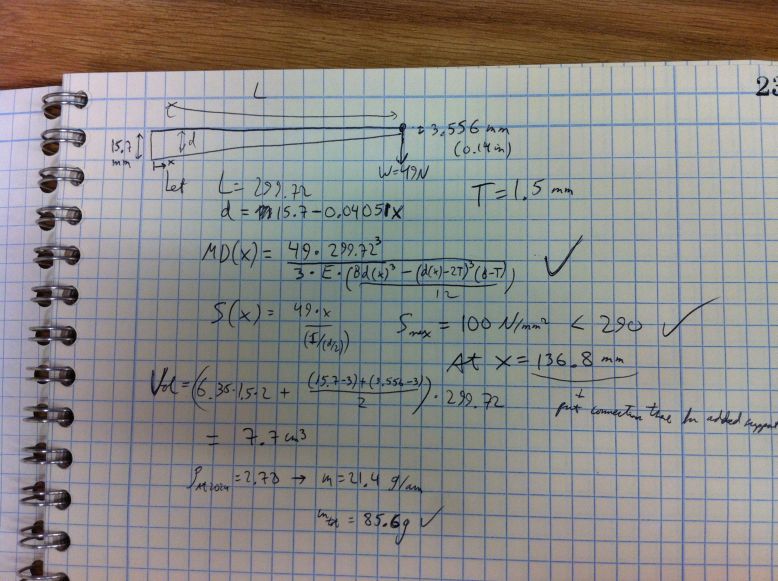 23
L
15.7 mm
d
x
= 3.556 mm
(0.14 in)
W=49N
Let L = 299.72
T = 1.5 mm
d = 15.7 - 0.04051x
MD(x) = 49·299.72³ / 3·E·(Bd(x)³ - (d(x)-2T)³(B-T) / 12) ✓
S(x) = 49·x / (I/(d/2))
Smax = 100 N/mm² < 290 ✓
At x = 136.8 mm
put connection here for added support
Vol = (6.35·1.5·2 + (15.7-3)+(3.556-3) / 2)·299.72
= 7.7 cm³
= 2.78 → m = 21.4 g/arm
mtot = 85.6g ✓